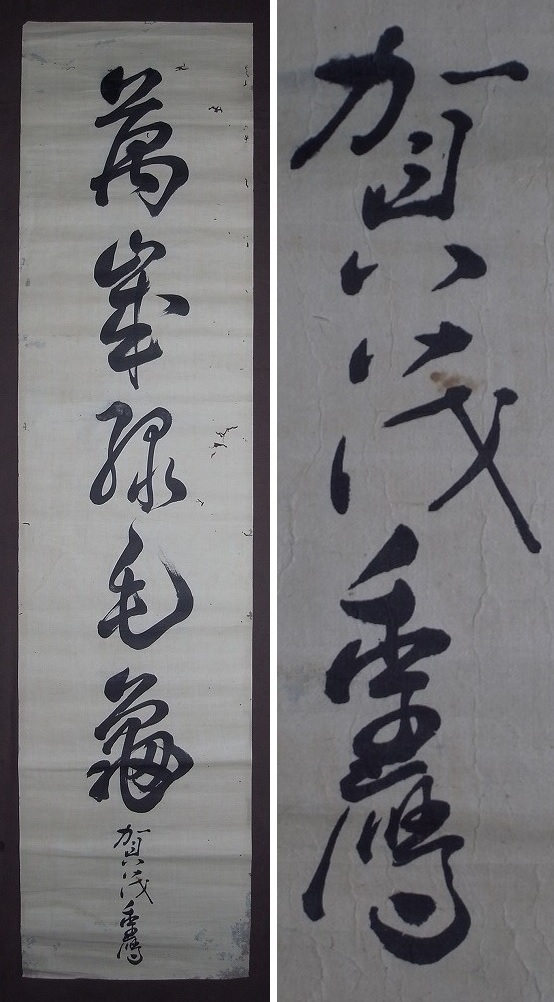 萬歳緑毛龜
賀茂季鷹
賀茂季鷹